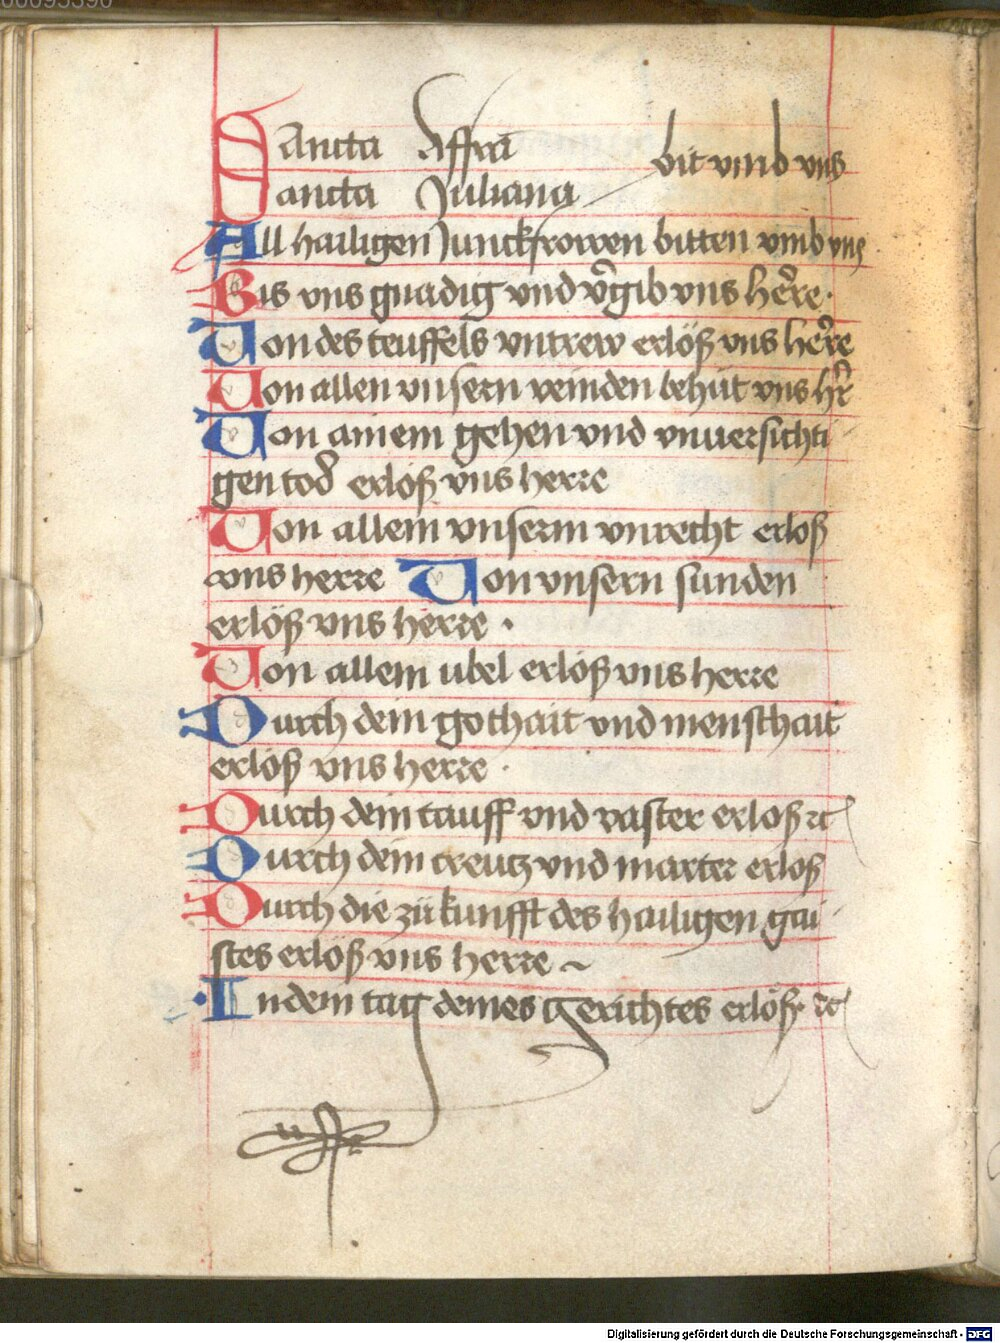 00095390
Sancta Affra bit vmb vns
Sancta Juliana
All hailigen Junckfrowen bitten vmb vns
Bis vns gnadig vnd v̉gib vns her̉e.
Von des teuffels vntrew erlöß vns her̉e
Von allen vnsern veinden behüt vns hr̉
Von ainem gehen vnd vnuersichti
gen tod erlöß vns herre
Von allem vnserm vnrecht erloß
vns herre Von vnsern sunden
erlöß vns herre .
Von allem ubel erlöß vns herre
Durch dein gothait vnd menschait
erlöß vns herre .
Durch dein tauff vnd vasten erloß ꝛc
Durch dein creutz vnd marter erloß
Durch die zükunfft des hailigen gai
stes erlöß vns herre ~
In dem tag deines gerichtes erlöß ꝛc
Digitalisierung gefördert durch die Deutsche Forschungsgemeinschaft - DFG